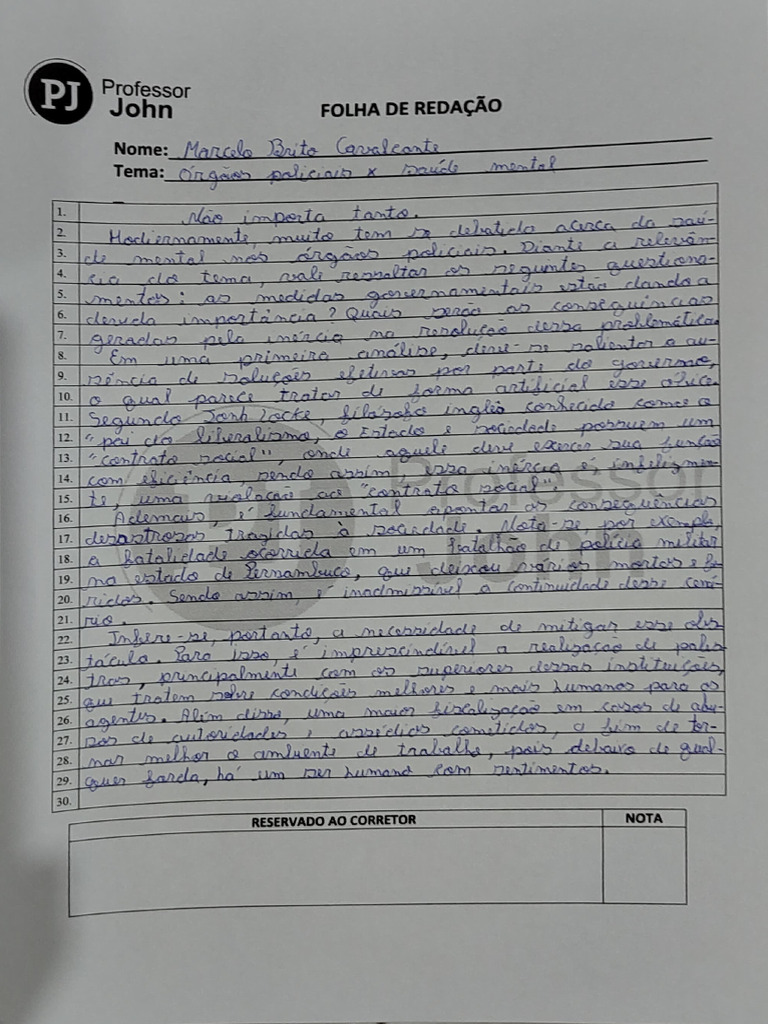 PJ Professor
John
FOLHA DE REDAÇÃO
Nome: Marcelo Brito Cavalcante
Tema: Órgãos policiais x saúde mental
1. Não importa tanto.
2. Hodiernamente, muito tem se debatido acerca da saú-
3. de mental nos órgãos policiais. Diante a relevân-
4. cia do tema, vale ressaltar os seguintes questiona-
5. mentos: as medidas governamentais estão dando a
6. devida importância? Quais serão as consequências
7. geradas pela inércia na resolução dessa problemática?
8. Em uma primeira análise, deve-se salientar a au-
9. sência de soluções efetivas por parte do governo,
10. o qual parece tratar de forma artificial esse óbice.
11. Segundo Jonh Locke, filósofo inglês conhecido como o
12. "pai do liberalismo, o Estado e sociedade possuem um
13. "contrato social", onde aquele deve exercer sua função
14. com eficiência, sendo assim essa inércia é infelizmen-
15. te, uma violação ao "contrato social".
16. Ademais, é fundamental apontar as consequências
17. desastrosas tragidas à sociedade. Nota-se, por exemplo,
18. a fatalidade ocorrida em um Batalhão de polícia militar
19. no estado de Pernambuco, que deixou vários mortos e fe-
20. ridos. Sendo assim, é inadmissível a continuidade desse cená-
21. rio.
22. Infere-se, portanto, a necessidade de mitigar esse obs-
23. táculo. Para isso, é imprescindível a realização de pales-
24. tras, principalmente com os superiores dessas instituições,
25. que tratem sobre condições melhores e mais humanas para os
26. agentes. Além disso, uma maior fiscalização em casos de abu-
27. sos de autoridades e assédios cometidos, a fim de tor-
28. nar melhor o ambiente de trabalho, pois debaixo de qual-
29. quer farda, há um ser humano com sentimentos.
30.
RESERVADO AO CORRETOR NOTA
Professor
John